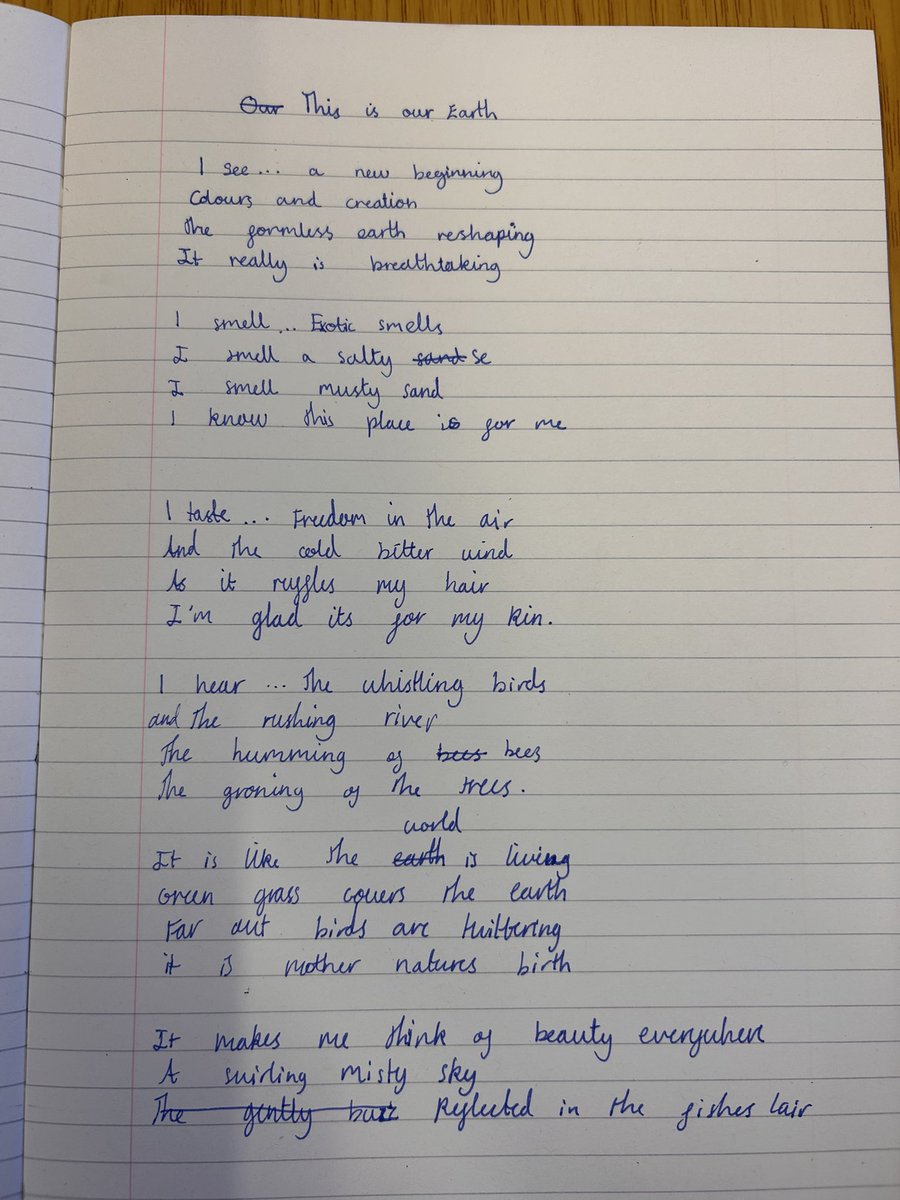 Our This is our Earth
I see... a new beginning
Colours and creation
the formless earth reshaping
It really is breathtaking
I smell... Exotic smells
I smell a salty sand se
I smell musty sand
I know this place is for me
I taste... Freedom in the air
And the cold bitter wind
As it ruffles my hair
I'm glad its for my kin.
I hear... the whistling birds
and the rushing river
The humming of bees bees
The groning of the trees.
world
It is like the earth is living
Green grass covers the earth
Far out birds are twittering
it is mother natures birth
It makes me think of beauty everywhere
A swirling misty sky
The gently buzz Reflected in the fishes lair